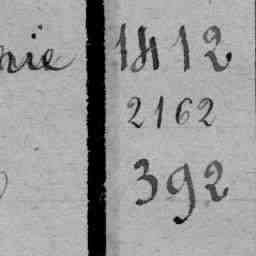 nie 1412
2162
392